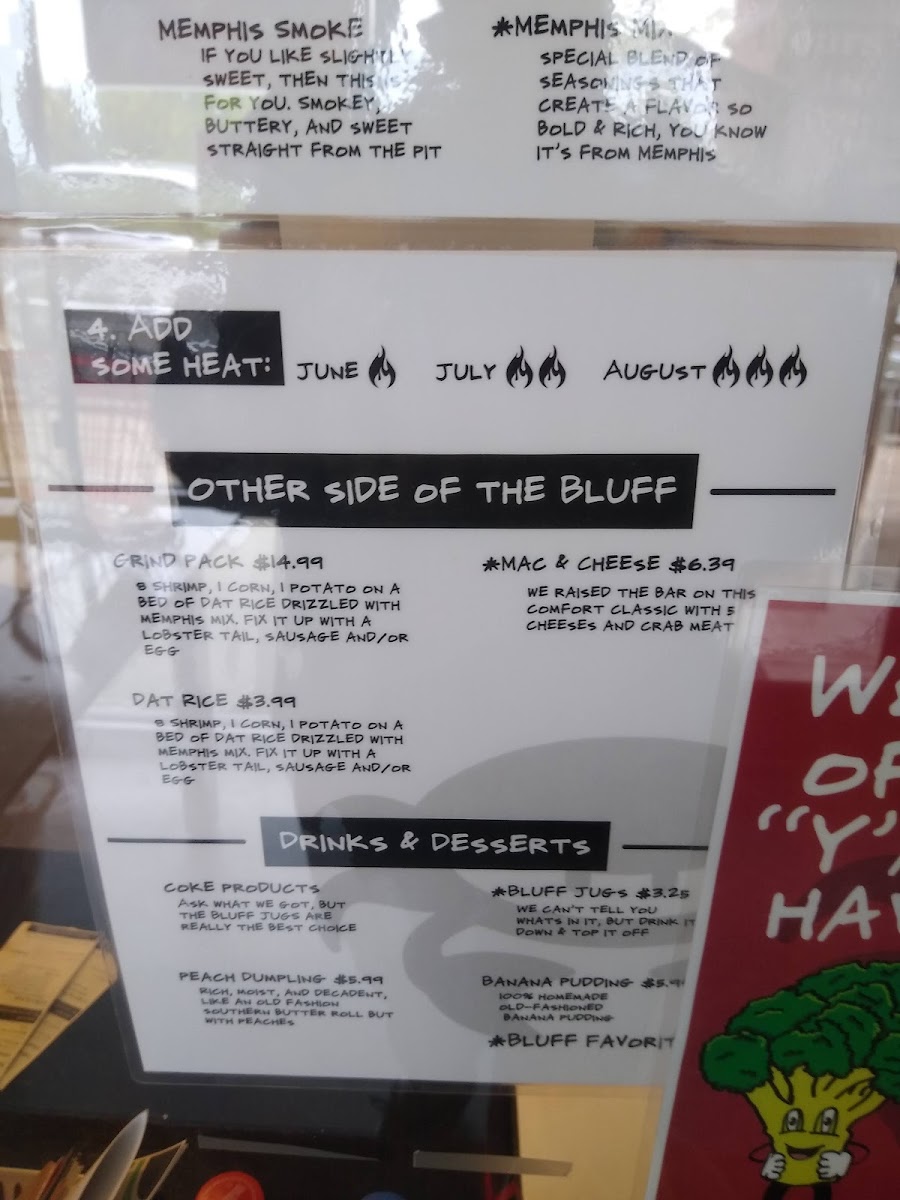 MEMPHIS SMOKE
IF YOU LIKE SLIGHTLY
SWEET, THEN THIS IS
FOR YOU. SMOKEY,
BUTTERY, AND SWEET
STRAIGHT FROM THE PIT
*MEMPHIS MIX
SPECIAL BLEND OF
SEASONINGS THAT
CREATE A FLAVOR SO
BOLD & RICH, YOU KNOW
IT'S FROM MEMPHIS
4. ADD
SOME HEAT:
JUNE
JULY
AUGUST
OTHER SIDE OF THE BLUFF
GRIND PACK $14.99
8 SHRIMP, 1 CORN, 1 POTATO ON A
BED OF DAT RICE DRIZZLED WITH
MEMPHIS MIX. FIX IT UP WITH A
LOBSTER TAIL, SAUSAGE AND/OR
EGG
*MAC & CHEESE $6.39
WE RAISED THE BAR ON THIS
COMFORT CLASSIC WITH 5
CHEESES AND CRAB MEAT
DAT RICE $3.99
8 SHRIMP, 1 CORN, 1 POTATO ON A
BED OF DAT RICE DRIZZLED WITH
MEMPHIS MIX. FIX IT UP WITH A
LOBSTER TAIL, SAUSAGE AND/OR
EGG
DRINKS & DESSERTS
COKE PRODUCTS
ASK WHAT WE GOT, BUT
THE BLUFF JUGS ARE
REALLY THE BEST CHOICE
*BLUFF JUGS $3.25
WE CAN'T TELL YOU
WHATS IN IT, BUT DRINK IT
DOWN & TOP IT OFF
PEACH DUMPLING $5.99
RICH, MOIST, AND DECADENT,
LIKE AN OLD FASHION
SOUTHERN BUTTER ROLL BUT
WITH PEACHES
BANANA PUDDING $5.9
100% HOMEMADE
OLD-FASHIONED
BANANA PUDDING
*BLUFF FAVORIT
OF
"Y'
HAV